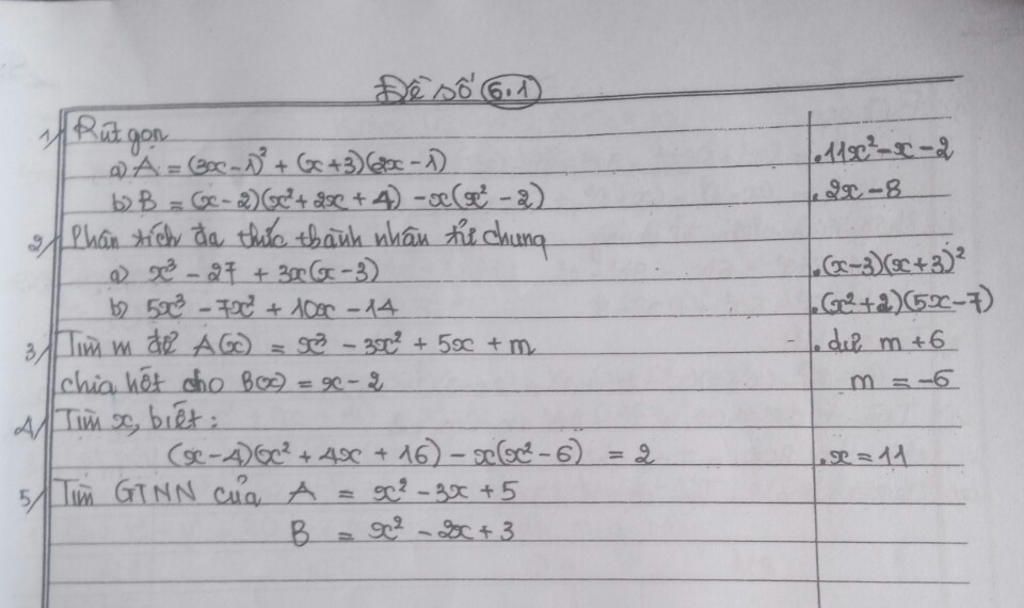 Đề số 5.1
1/ Rút gọn
a) A = (3x - 1)² + (x + 3)(2x - 1) . 11x² - x - 2
b) B = (x - 2)(x² + 2x + 4) - x(x² - 2) . 2x - 8
2/ Phân tích đa thức thành nhân tử chung
a) x³ - 27 + 3x(x - 3) . (x - 3)(x + 3)²
b) 5x³ - 7x² + 10x - 14 . (x² + 2)(5x - 7)
3/ Tìm m để A(x) = x³ - 3x² + 5x + m . dư m + 6
chia hết cho B(x) = x - 2 m = -6
4/ Tìm x, biết:
(x - 4)(x² + 4x + 16) - x(x² - 6) = 2 . x = 11
5/ Tìm GTNN của A = x² - 3x + 5
B = x² - 2x + 3